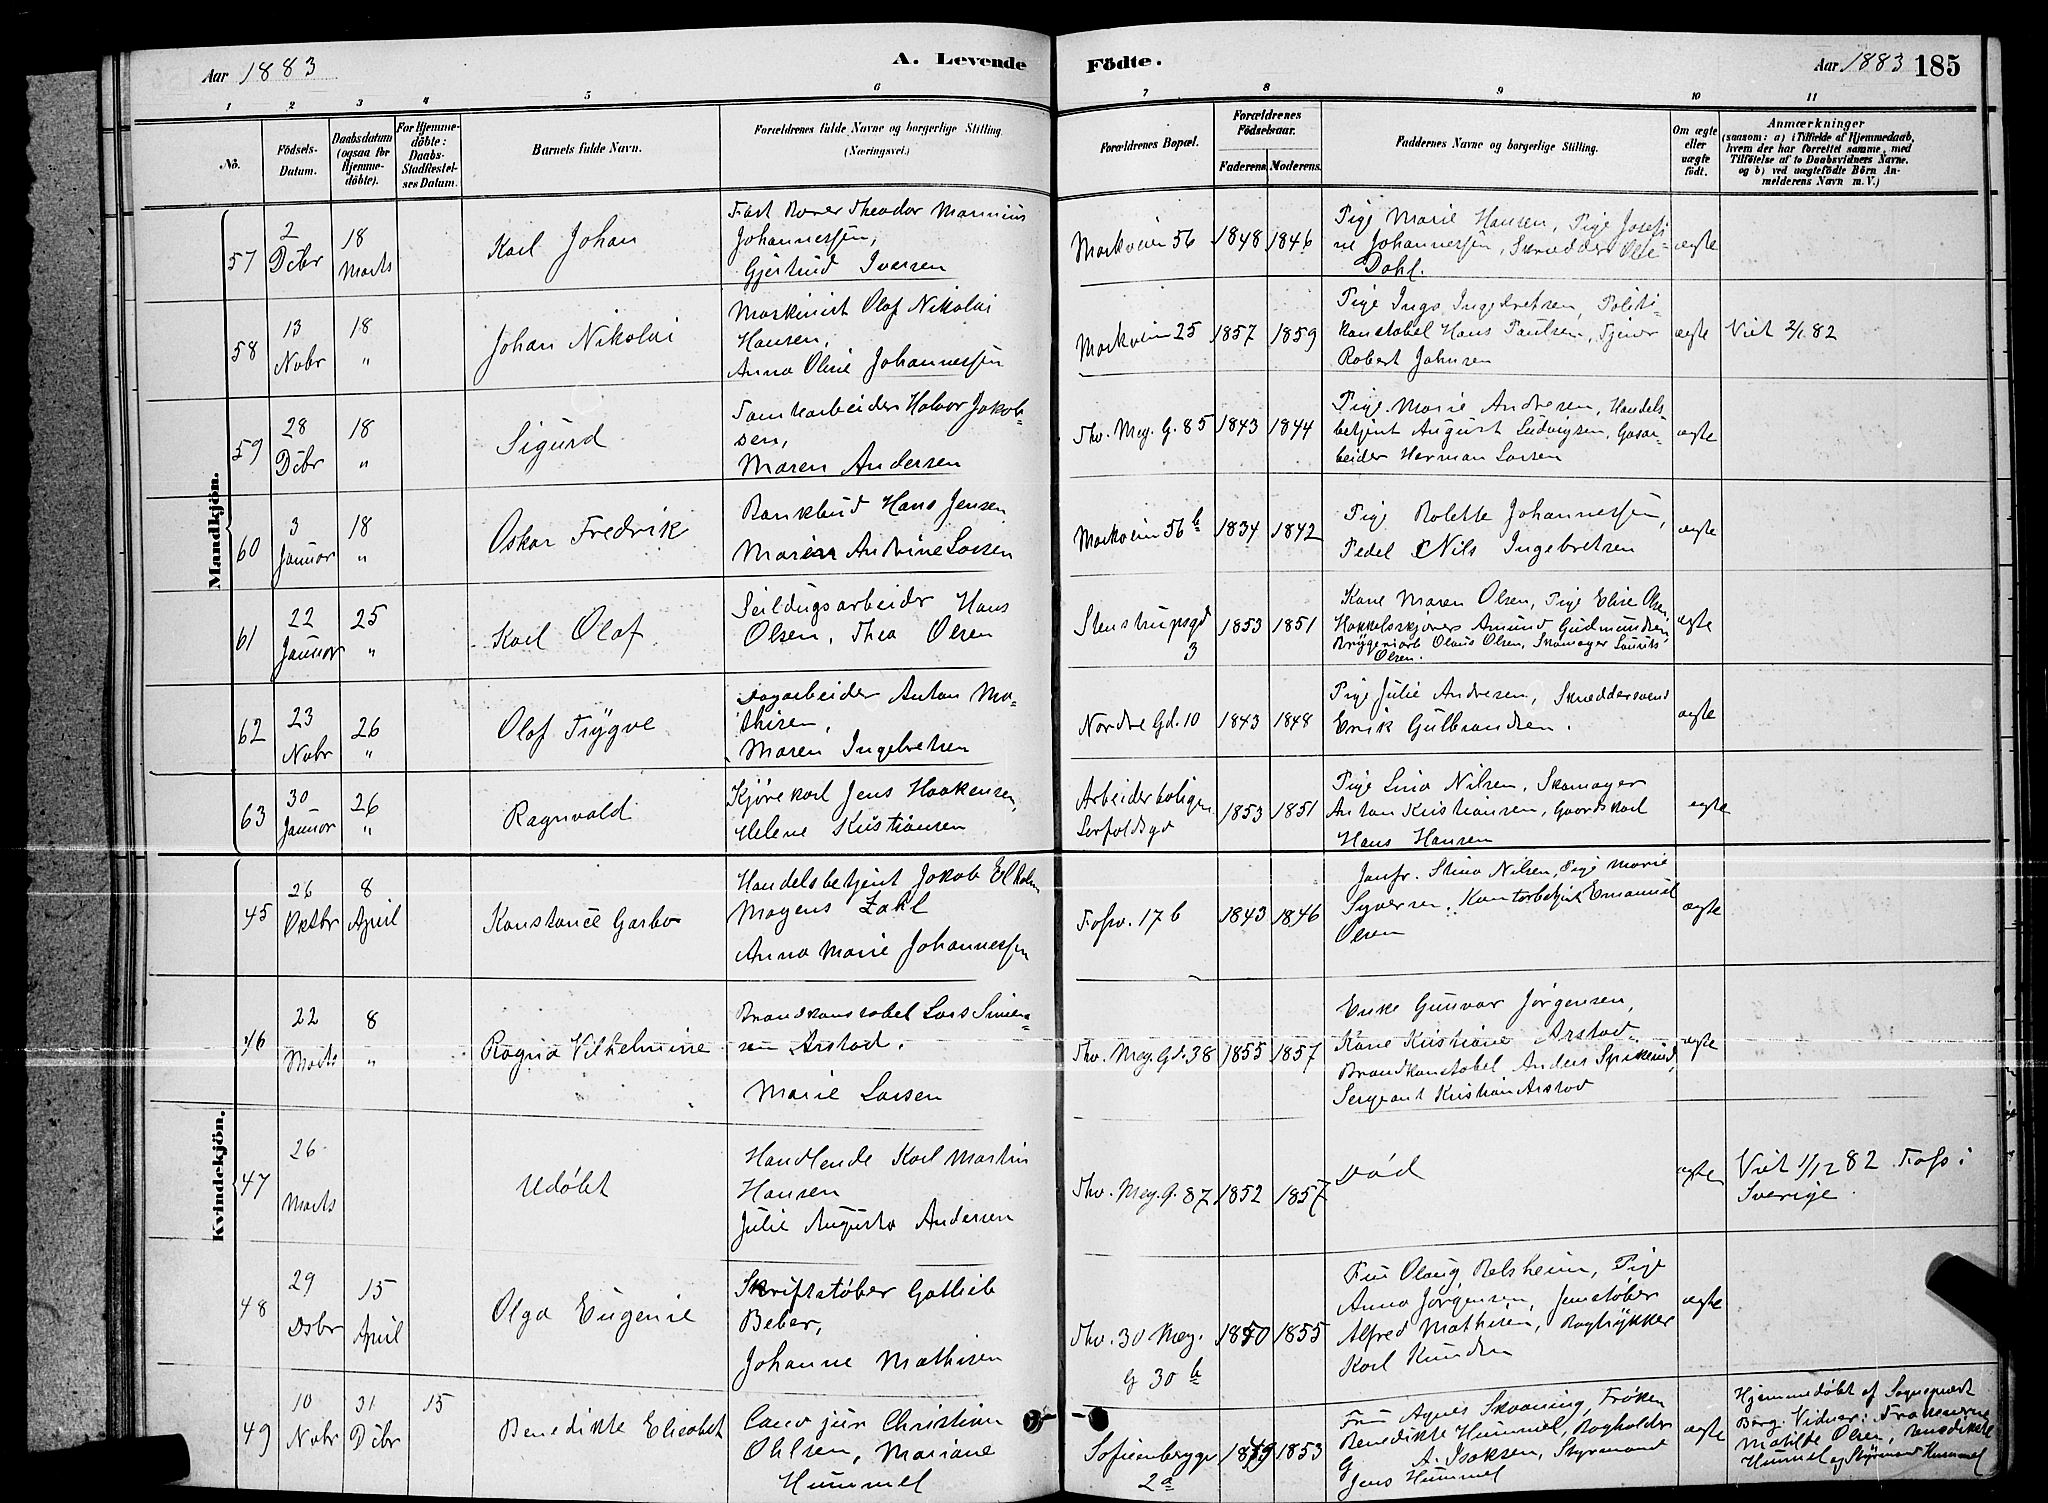 Aar 1883
A. Levende Födte.
Aar 1883 185
1 2 3 4 5 6 7 8 9 10 11
Nô.
Födsels-Datum.
Daabsdatum (ogsaa for Hjemme-döbte).
For Hjemme-döbte: Daabs-Stadfæstel-ses Datum.
Barnets fulde Navn.
Forældrenes fulde Navne og borgerlige Stilling. (Næringsvei.)
Forældrenes Bopæl.
Forældrenes Födselsaar.
Faderens. Moderens.
Faddernes Navne og borgerlige Stilling.
Om ægte eller uægte födt.
Anmærkninger
(saasom: a) i Tilfælde af Hjemmedaab, hvem der har forrettet samme, med Tilföielse af to Daabsvidners Navne. og b) ved uægtefödte Börn An-melderens Navn m. V.)
Mandkjön.
57 2 Dcbr 18 Marts Karl Johan
Theodor Marinius
Johannessen,
Gjertrud Iversen
Markveien 56 1848 1846
Pige Marie Hansen, Pige Josefi
ne Johannessen, Skrædder Ole
Dahl.
ægte
58 13 Nobr 18 " Johan Nikolai
Maskinist Olaf Nikolai
Hansen,
Anna Oline Johannessen
Markveien 25 1857 1859
Pige Inga Ingebretsen, Politi-
konstabel Hans Paulsen, Tjener
Robert Johnsen
ægte
Viet 2/1 82
59 28 Dcbr 18 " Sigurd
Tomtearbeider Halvor Jakob-
sen,
Maren Andersen
Thv. Mey. G. 85 1843 1844
Pige Marie Andresen, Handels
betjent August Ludvigsen, Gasar-
beider Herman Larsen
ægte
60 3 Januar 18 " Oskar Fredrik
Bankbud Hans Jensen
Maren Andrine Larsen
Markveien 56 b 1834 1842
Pige Rolette Johannessen,
Pedel Nils Ingebretsen
ægte
61 22 Januar 25 " Karl Olaf
Seildugsarbeider Hans
Olsen, Thea Olsen
Stenstrupsgd
3
1853 1851
Kone Maren Olsen, Pige Elise Olsen,
Amund Gudmundsen,
Bryggeriarb Olaus Olsen, Skomager Laurits
Olsen.
ægte
62 23 Nobr 26 " Olaf Trygve
Dagarbeider Anton Ma-
thisen,
Maren Ingebretsen
Nordre Gd. 10 1843 1848
Pige Julie Andresen, Skreddersvend
Erik Gulbrandsen.
ægte
63 30 Januar 26 " Ragnvald
Kjørekarl Jens Haakensen,
Helene Kristiansen
Arbeiderboligen
1853 1851
Pige Lina Nilsen, Skomager
Anton Kristiansen, Gaardskarl
Hans Hansen
ægte
Kvindekjön.
45 26 Oktbr 8 April Konstance Garbo
Handelsbetjent Jakob
Mogens Zahl
Anna Marie Johannessen
Fosv. 17 b 1843 1846
Jomfr. Stina Nilsen, Pige Marie
Syversen, Kontorbetjent Emanuel
Olsen
ægte
46 22 Marts 8 " Ragna Vilhelmine
Brandkonstabel Lars Simen-
sen Arstad.
Marie Larsen
Thv. Mey. Gd. 38 1855 1857
Enke Gunvor Jørgensen,
Kone Kristiane Arstad
Brandkonstabel Anders
Sergeant Kristian Arstad
ægte
47 26 Marts Udøbt
Handlende Karl Martin
Hansen
Julie Augusta Andersen
Thv. Mey. G. 87 1852 1857
Død
ægte
Viet 1/12 82 i
Sverige.
48 29 Dsbr 15 April Olga Eugenie
Skriftstøber Gotlieb
Beber,
Johanne Mathisen
Thv. 30 Mey.
G 30 b
1850 1855
Fru Olaug Relsheim, Pige
Anna Jørgensen, Jernstøber
Alfred Mathisen, Bogtrykker
Karl Knudsen
ægte
49 10 Nobr 31 Dcbr 15 Benedikte Elisabet
Cand jur Christian
Ohlsen, Mariane
Hummel
Sofienberggd
2a
1849 1853
Fru Agnes Skvaning, Frøken
Benedikte Hummel, Bogholder
G A. Isaksen, Styrmand
Jens Hummel
ægte
Hjemmedøbt af Sognepræst
Berg. Vidner: Frøknerne
Matilde Olsen, Benedikte
Hummel og Styrmand Hummel